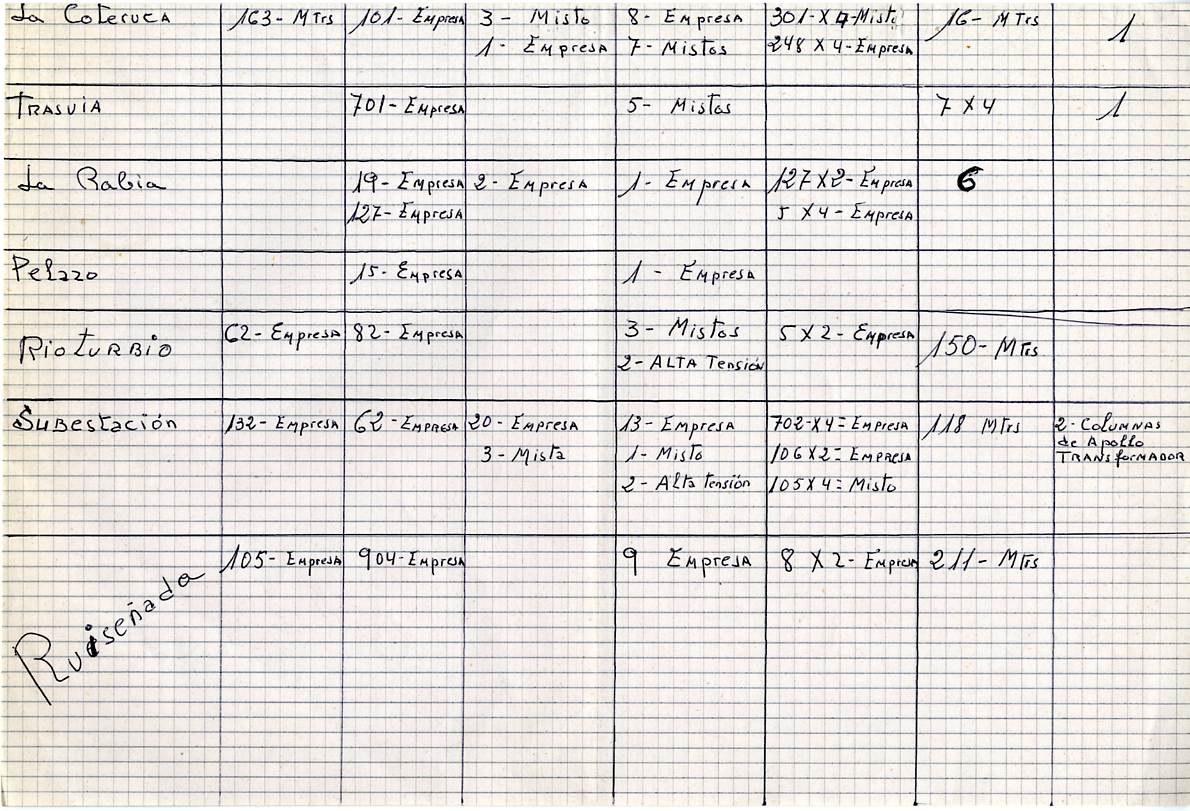 La Coteruca 163- MTrs 101- Empresa 3- Misto 8- Empresa 301-X 4-Misto 16- MTrs 1
1- Empresa 7- Mistos 248 X 4-Empresa
Trasvia 701- Empresa 5- Mistos 7 X 4 1
La Rabia 19- Empresa 2- Empresa 1- Empresa 127 X2- Empresa 6
127- Empresa 5 X4- Empresa
15- Empresa 1- Empresa
RioTurbio 62- Empresa 82- Empresa 3- Mistos 5 X 2- Empresa 150- MTrs
2- ALTA Tensión
Subestación 132- Empresa 62- Empresa 20- Empresa 13- Empresa 702-X4= Empresa 118 MTrs 2- Columnas
de Apollo
3- Mista 1- Misto 106X2= Empresa TRANSformador
2- Alta tensión 105X4= Misto
Ruiseñada 105- Empresa 904- Empresa 9 Empresa 8 X 2- Empresa 211- MTrs